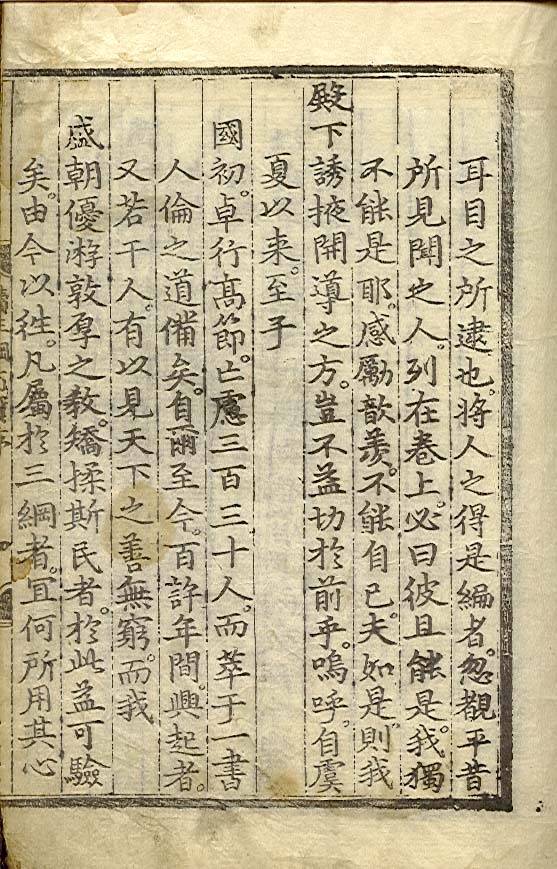 耳目之所逮也。將人之得是編者。忽觀平昔
所見聞之人。列在卷上。必曰彼且能是。我獨
不能是耶。感勵歆羨。不能自已。夫如是則我
殿下誘掖開導之方。豈不益切於前乎。嗚呼。自虞
夏以来。至于
國初。卓行高節。亡慮三百三十人。而萃于一書
人倫之道備矣。自爾至今。百許年間。興起者。
又若干人。有以見天下之善無窮。而我
盛朝優游敦厚之敎。矯揉斯民者。於此益可驗
矣。由今以往。凡屬於三綱者。宜何所用其心